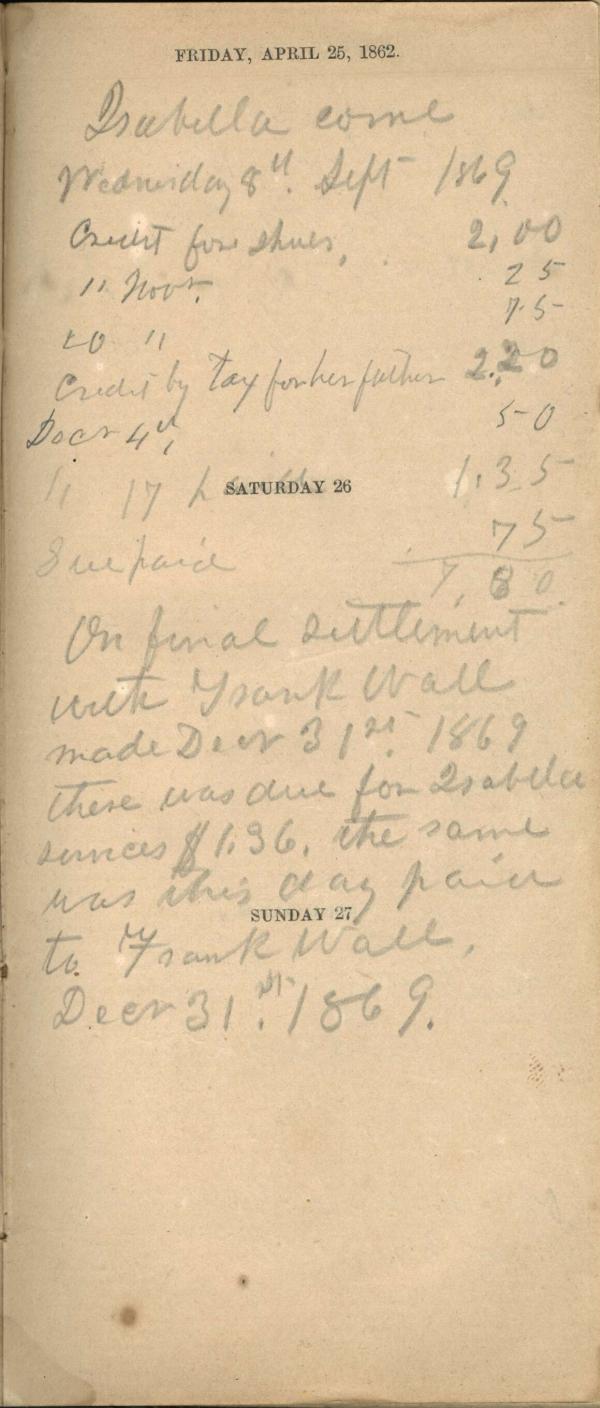 FRIDAY, APRIL 25, 1862.
Isabella come
Wednesday 8th. Sept 1869
Credit for shues, 2,00
11 Novr. 25
20 " 75
Credit by tax for her father 2.20
Decr 4th, 50
" 17 1.35
SATURDAY 26
75
Sue paid 7,80
On final settlement
with Frank Wall
made Decr 31st. 1869
there was due for Isabella
services $1.36. the same
was this day paid
SUNDAY 27
to Frank Wall,
Decr 31st. 1869.